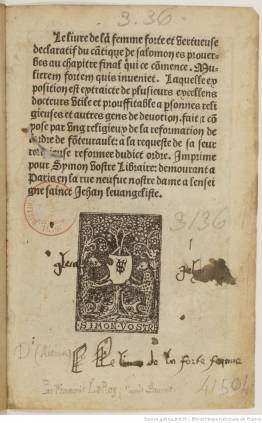 3.36
Le liure de la femme forte et vertueuse
declaratif du cãtique de salomon es prouer-
bes au chapitre final qui se cõmence. Mu-
lierem fortem quis inueniet. Laquelle ex
position est extraicte de plusieurs excellens
docteurs vtile et prouffitable a psonnes reli
gieuses et autres gens de deuotion. fait ⁊ cõ
pose par vng religieux de la reformation de
lordre de fõteurault: a la requeste de sa seur
religieuse reformee dudict ordre. Imprime
pour Symon vostre Libraire: demourant a
Paris en la rue neufue nostre dame a lensei
gne sainct Jehan leuangeliste.
3136
SIMON VOSTRE
Le liure de la forte femme
Par François Le Roy
41504